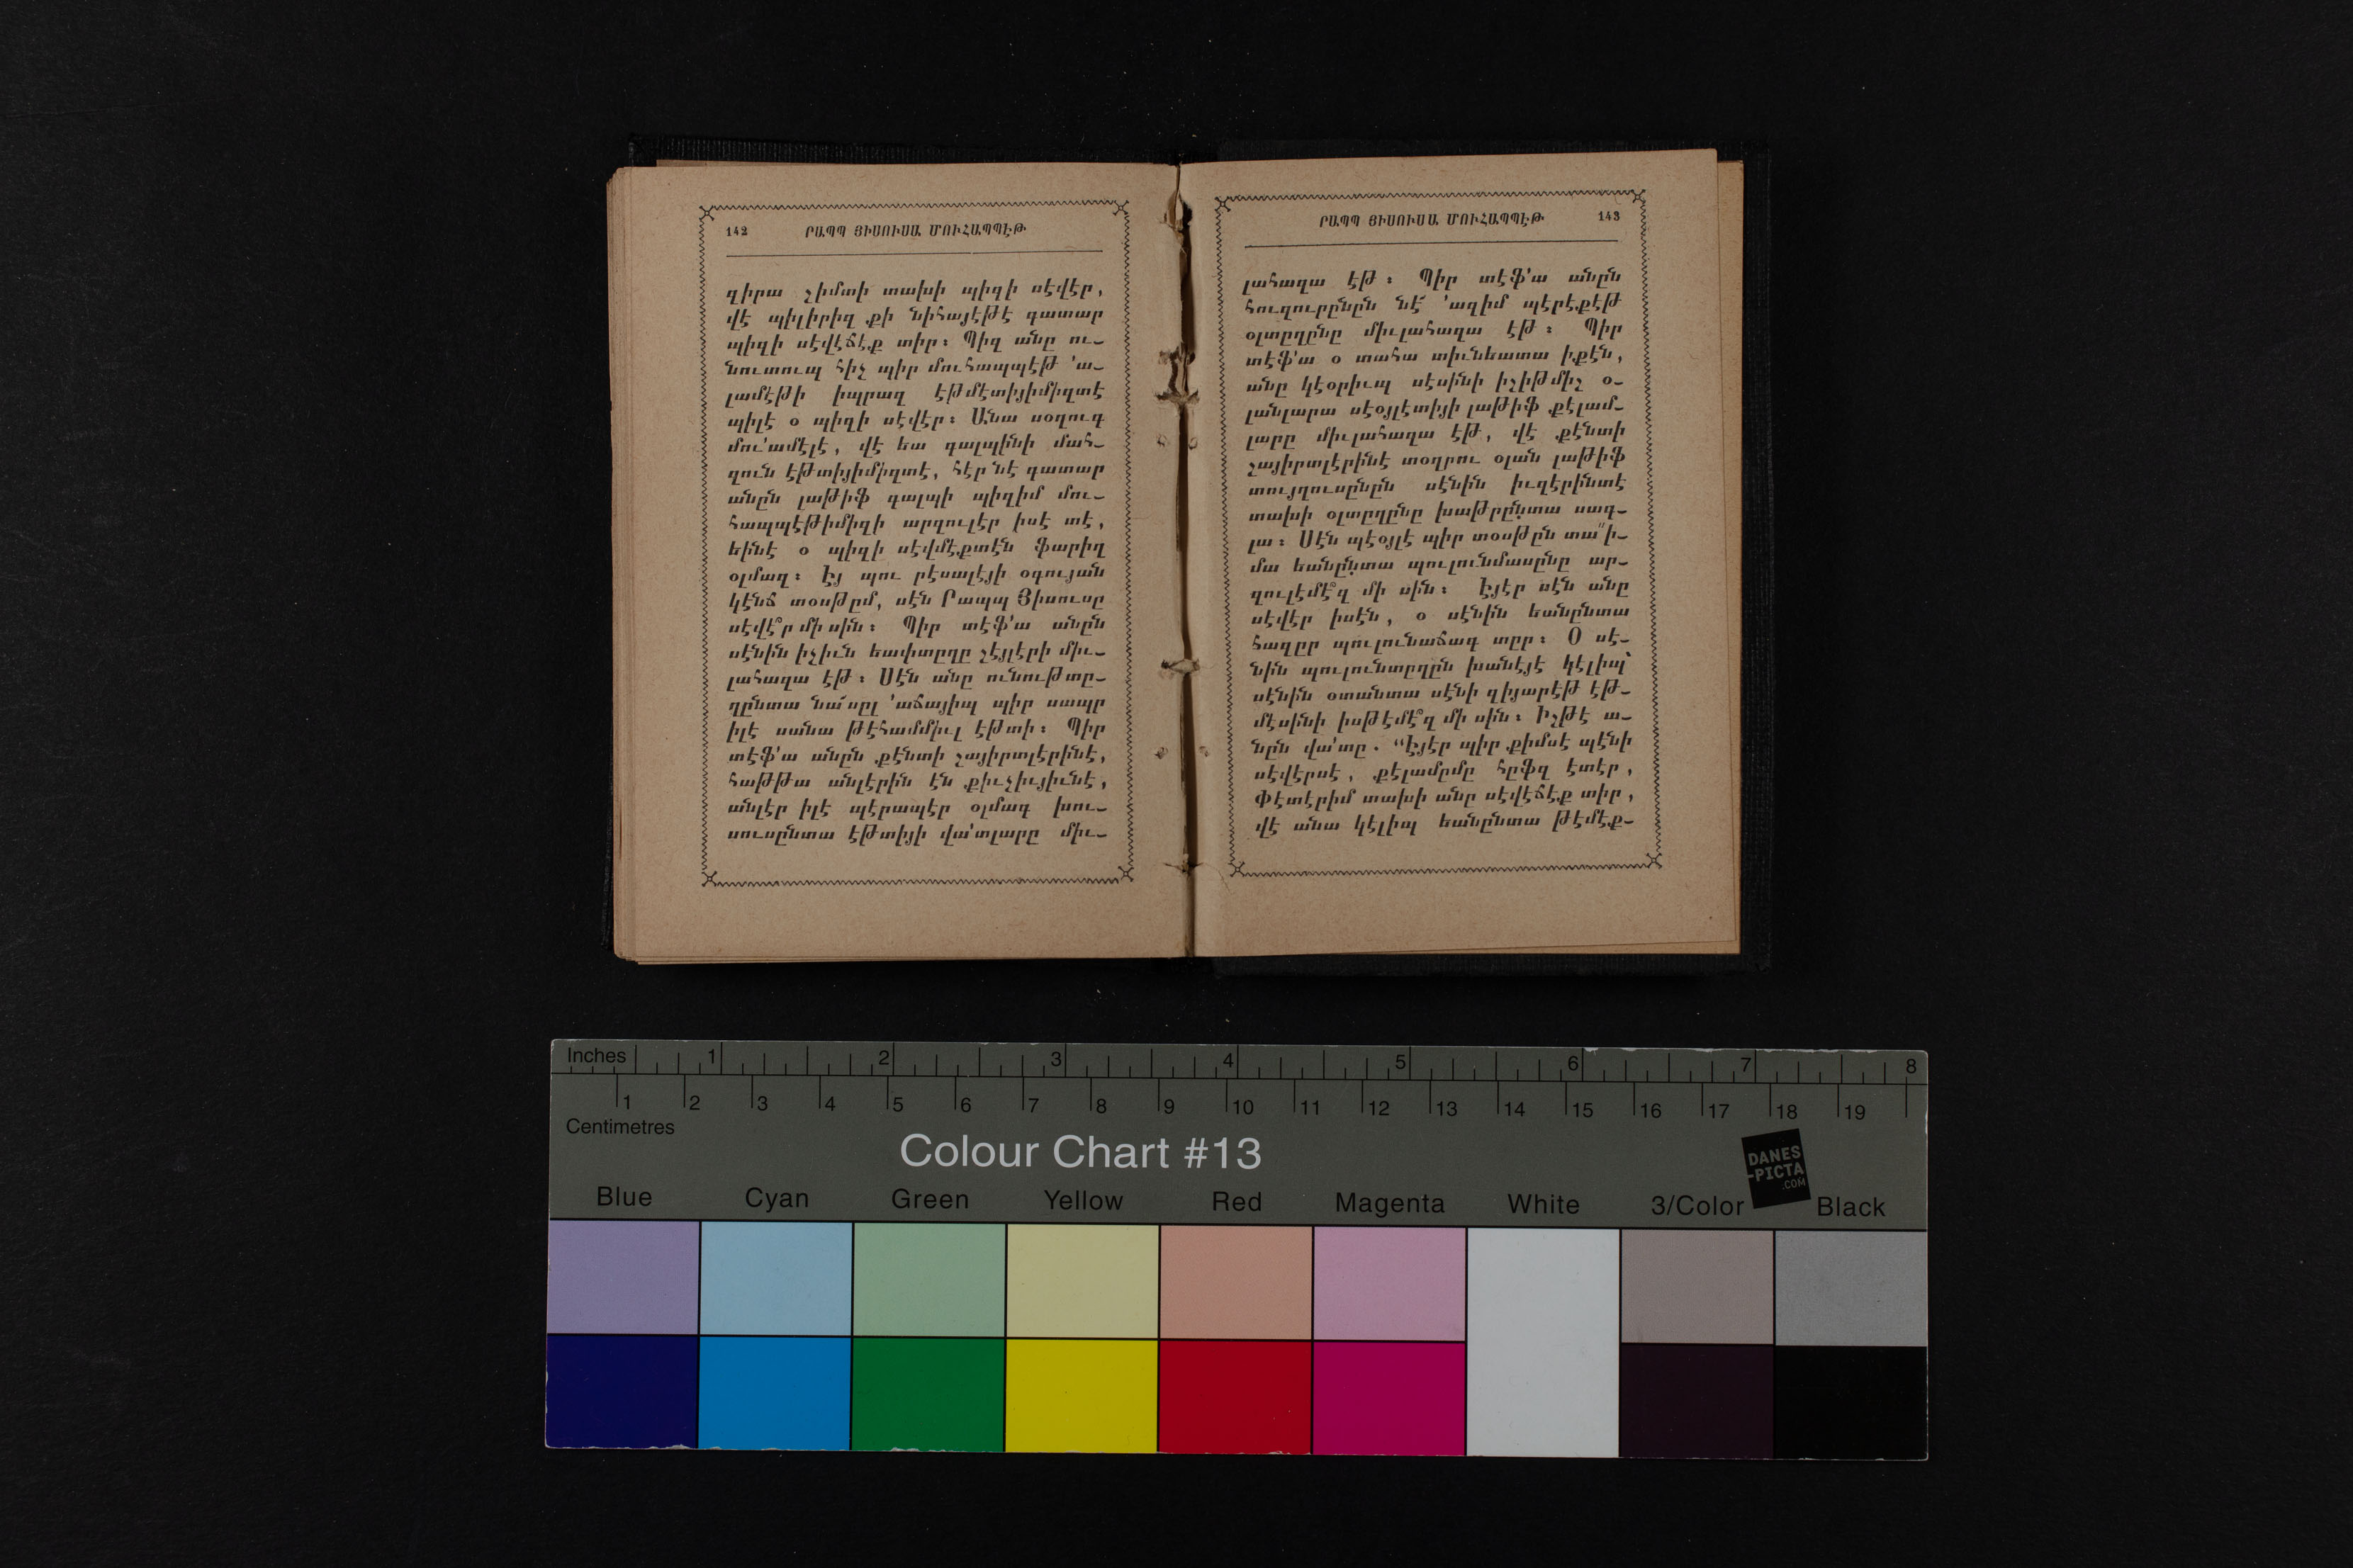 142 ՐԱՊՊ ՅԻՍՈՒՍԱ ՄՈՒՀԱՊՊԷԹ
զիրա չիմտի տախի պիզի սէվէր,
վէ պիլիրիզ քի նիհայէթէ գատար
պիզի սէվէճէք տիր։ Պիզ անը ու-
նուտուպ հիչ պիր մուհապպէթ 'ա-
լամէթի իպրազ էթմէտիյիմիզտէ
պիլէ օ պիզի սէվէր։ Անա սօղուգ
մու'ամէլէ, վէ եա գալպինի մահ-
զուն էթտիյիմիզտէ, հէր նէ գատար
անըն լաթիֆ գալպի պիզիմ մու-
հապպէթիմիզի արզուլէր իսէ տէ,
եինէ օ պիզի սէվմէքտէն ֆարիղ
օլմազ։ Էյ պու րէսալէյի օգույան
կէնճ տօսթըմ, սէն Րապպ Յիսուսը
սէվէ՞ր մի սին։ Պիր տէֆ'ա անըն
սէնին իչիւն եափտըղը շէյլէրի միւ-
լահազա էթ։ Սէն անը ունութտը-
ղընտա նա՛սըլ 'աճայիպ պիր սապր
իլէ սանա թէհամմիւլ էթտի։ Պիր
տէֆ'ա անըն քէնտի շայիրտլէրինէ,
հաթթա անլէրին էն քիւչիւյիւնէ,
անլէր իլէ պէրապէր օլմագ խու-
սուսընտա էթտիյի վա'տլարը միւ-
ՐԱՊՊ ՅԻՍՈՒՍԱ ՄՈՒՀԱՊՊԷԹ 143
լահազա էթ։ Պիր տէֆ'ա անըն
հուզուրընըն նէ՛ 'ազիմ պէրէքէթ
օլտըղընը միւլահազա էթ։ Պիր
տէֆ'ա օ տահա տիւնեատա իքէն,
անը կէօրիւպ սէսինի իշիթմիշ օ-
լանլարա սէօյլէտիյի լաթիֆ քէլամ-
լարը միւլահազա էթ, վէ քէնտի
շայիրտլէրինէ տօղրու օլան լաթիֆ
տույղուսընըն սէնին իւզէրինտէ
տախի օլտըղընը խաթրընտա սագ-
լա։ Սէն պէօյլէ պիր տօսթըն տա՛՛ի-
մա եանընտա պուլունմասընը ար-
զուլէմէ՞զ մի սին։ Էյէր սէն անը
սէվէր իսէն, օ սէնին եանընտա
հազըր պուլունաճագ տըր։ Օ սէ-
նին պուլունտըղըն խանէյէ կէլիպ՝
սէնին օտանտա սէնի զիյարէթ էթ-
մէսինի իսթէմէ՞զ մի սին։ Իշթէ ա-
նըն վա'տը. «Էյէր պիր քիմսէ պէնի
սէվէրսէ, քէլամըմը հըֆզ էտէր,
Փէտէրիմ տախի անը սէվէճէք տիր,
վէ անա կէլիպ եանընտա թէմէք-
Inches 1 2 3 4 5 6 7 8
1 2 3 4 5 6 7 8 9 10 11 12 13 14 15 16 17 18 19
Centimetres
Colour Chart #13
DANES
-PICTA
.COM
Blue Cyan Green Yellow Red Magenta White 3/Color Black